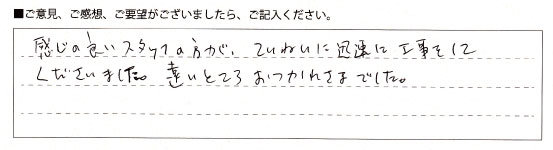 ■ご意見、ご感想、ご要望がございましたら、ご記入ください。
感じの良いスタッフの方が、ていねいに迅速に工事をして
くださいました。遠いところおつかれさまでした。